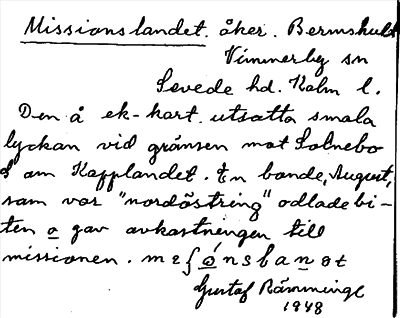 Missionslandet. åker. Bermshult
Vimmerby sn
Sevede hd. Kalm l.
Den å ek-kart. utsatta smala
lyckan vid gränsen mot Solnebo
S om Kapplandet. En bonde, August,
som var "nordöstring" odlade bi-
ten o gav avkastningen till
missionen.
Gustaf Rämminge
1948